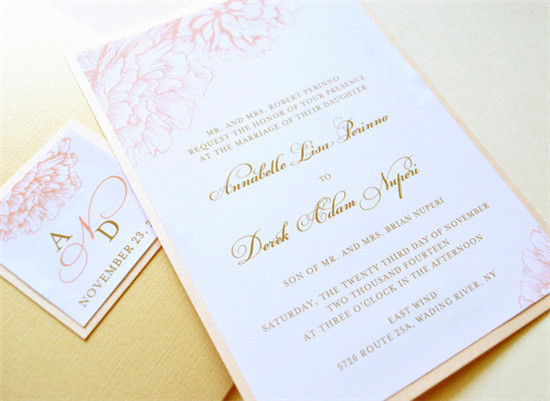 MR. AND MRS. ROBERT PERINNO
REQUEST THE HONOR OF YOUR PRESENCE
AT THE MARRIAGE OF THEIR DAUGHTER
Annabelle Lisa Perinno
TO
Derek Adam Nuperi
SON OF MR. AND MRS. BRIAN NUPERI
SATURDAY, THE TWENTY THIRD DAY OF NOVEMBER
TWO THOUSAND FOURTEEN
AT THREE O'CLOCK IN THE AFTERNOON
EAST WIND
5720 ROUTE 25A, WADING RIVER, NY
A N D
NOVEMBER 23,